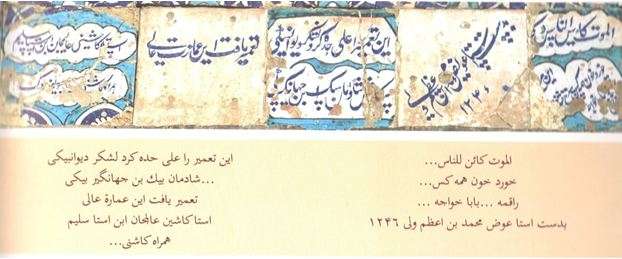 ۱۲۴۶
این تعمیر را علی حده کرد لشکر دیوانبیکی
شادمان بیک بن جهانگیر بیکی
تعمیر یافت این عمارت عالی
الموت کائن للناس...
خورد خون همه کس...
راقمه ...بابا خواجه ...
بدست استا عوض محمد بن اعظم ولی ۱۲۴۶
این تعمیر را علی حده کرد لشکر دیوانبیکی
...شادمان بیك بن جهانگیر بیکی
تعمیر یافت این عمارة عالی
استا کاشین عالمجان ابن استا سلیم
همراه کاشنی...